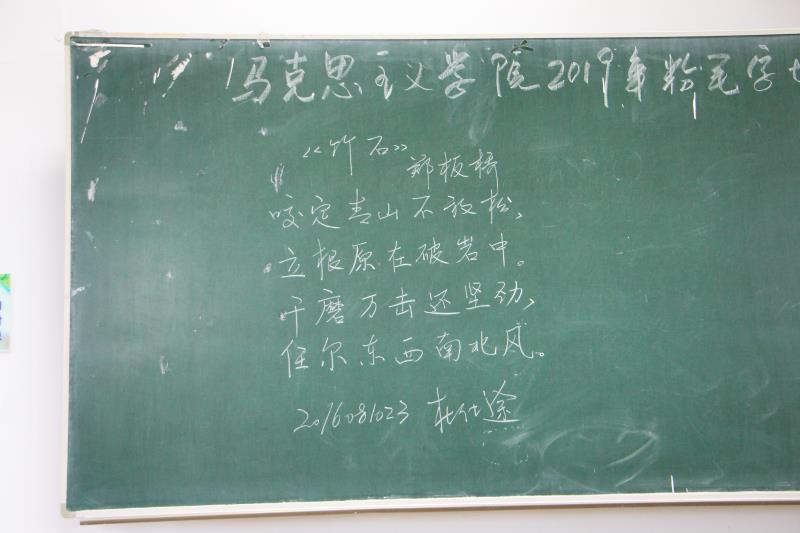 马克思主义学院2019年粉笔字
《竹石》 郑板桥
咬定青山不放松、
立根原在破岩中。
千磨万击还坚劲、
任尔东西南北风。
2016081023 杜仕途